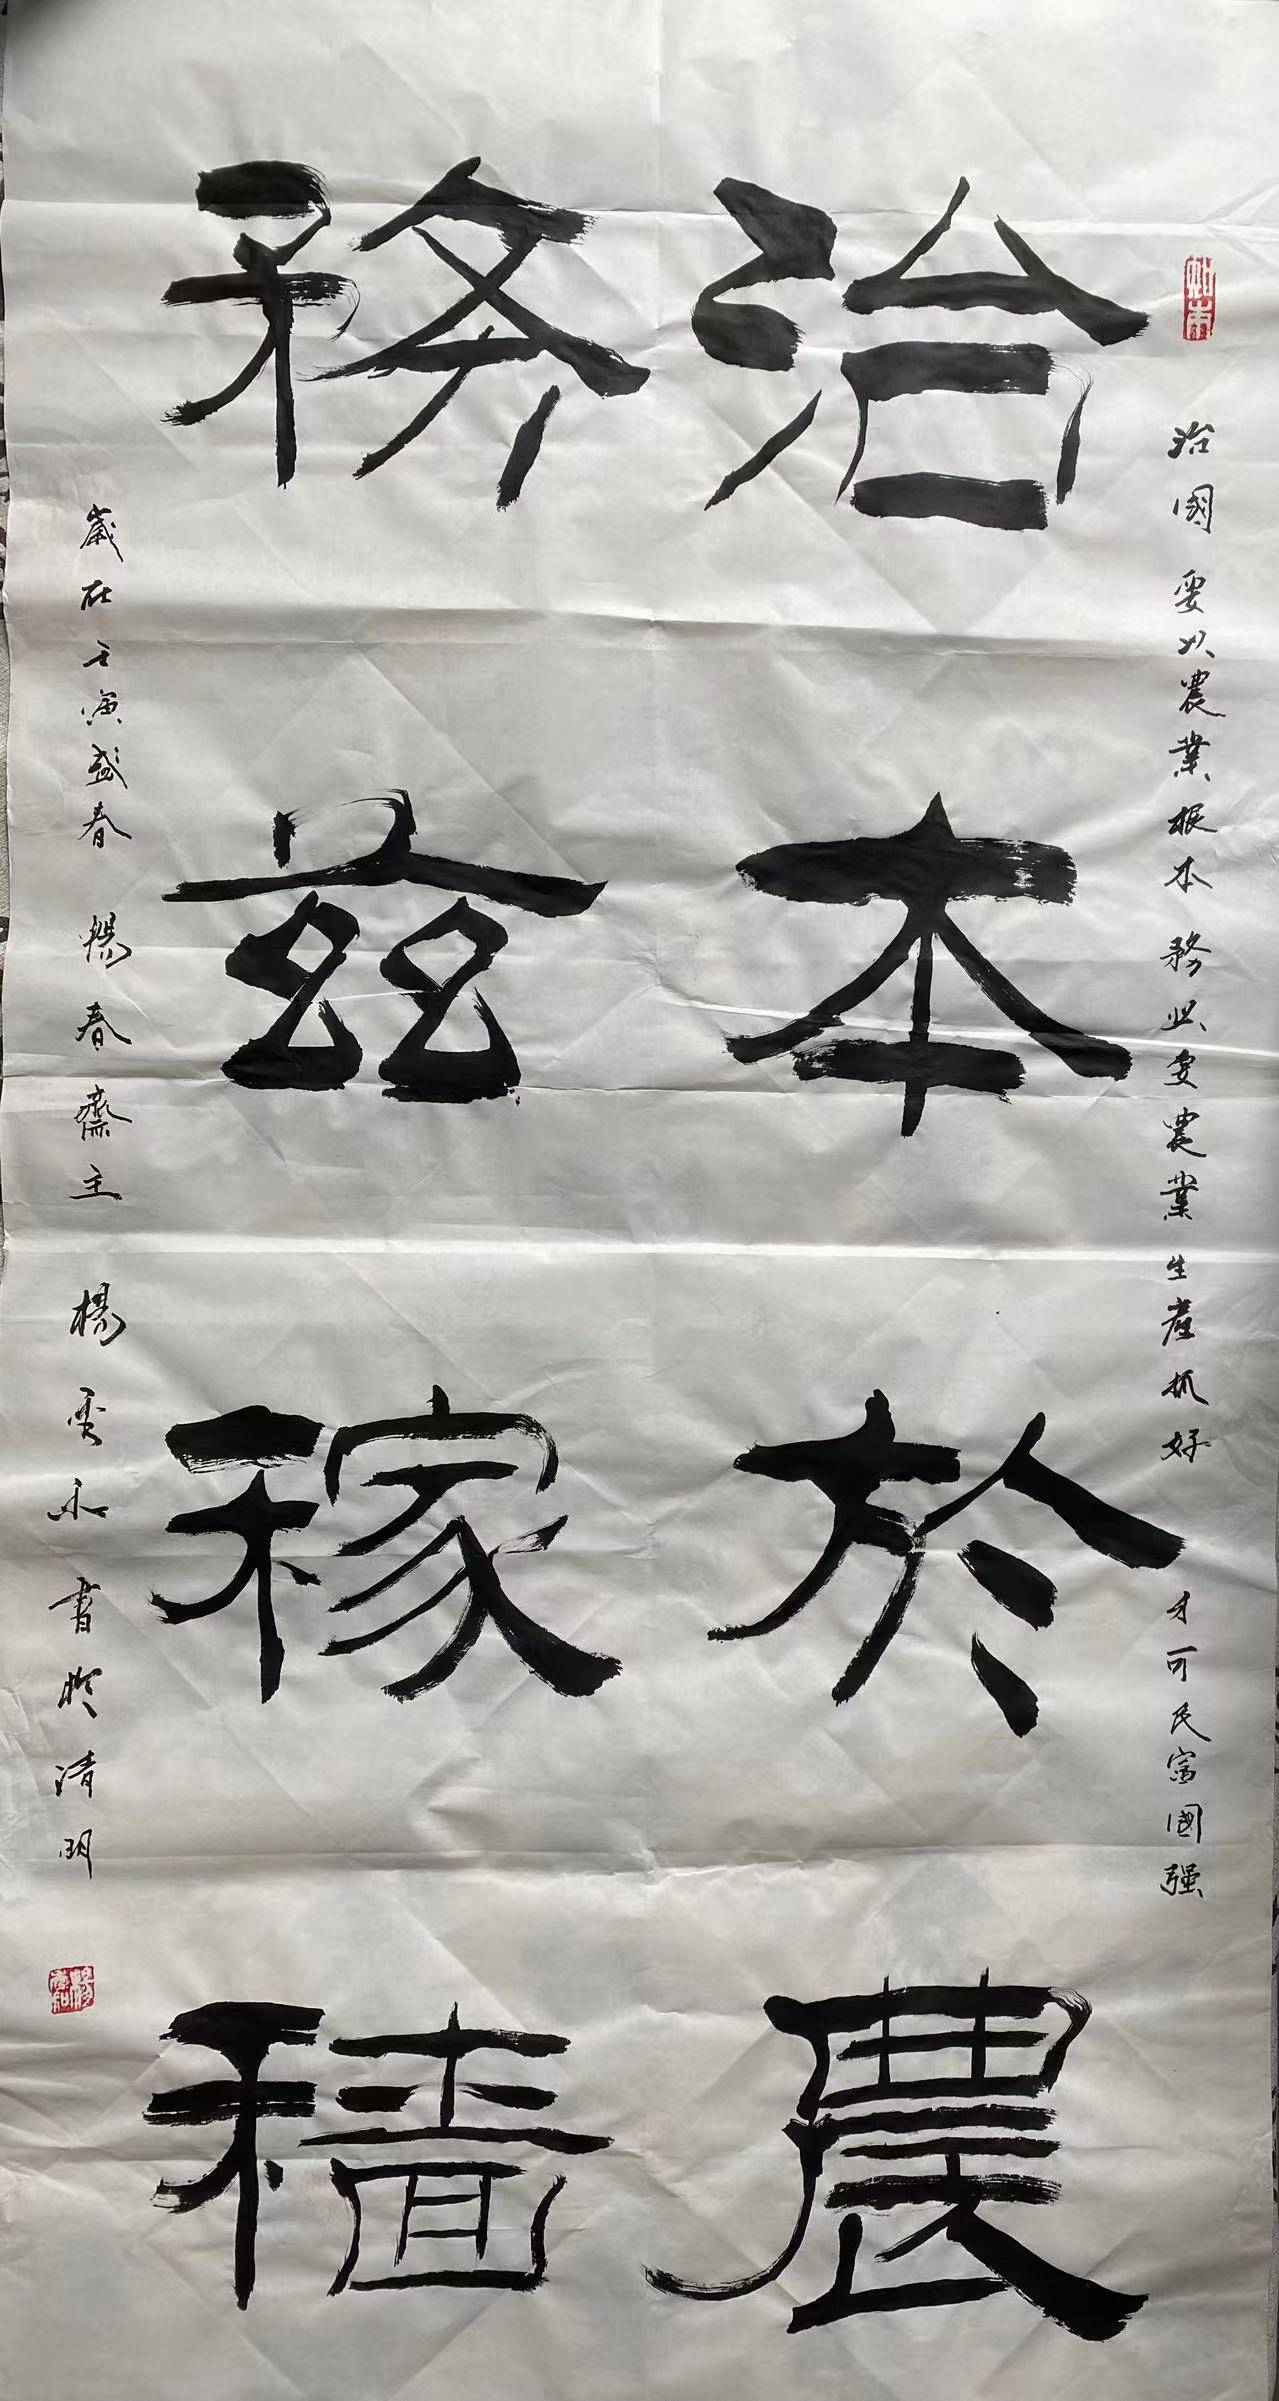 治國要以農業根本務必要農業生産抓好才可民富國强
治本於農
務茲稼穡
歲在壬寅盛春 暢春齋主 楊和書於清明